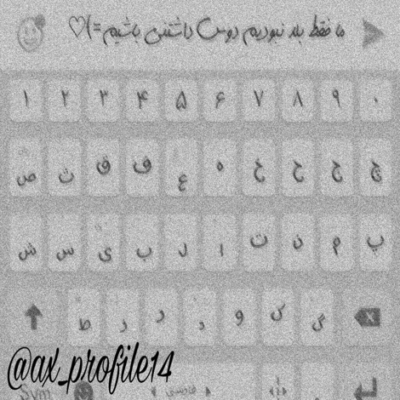 ما فقط بلد نبودیم دوس داشتنی باشیم=)♡
۱ ۲ ۳ ۴ ۵ ۶ ۷ ۸ ۹ ۰
ص ث ق ف ع ه خ ح ج چ
ش س ی ب ل ا ت ن م پ
ظ ر د و ک گ
@ax_profile14
فارسی